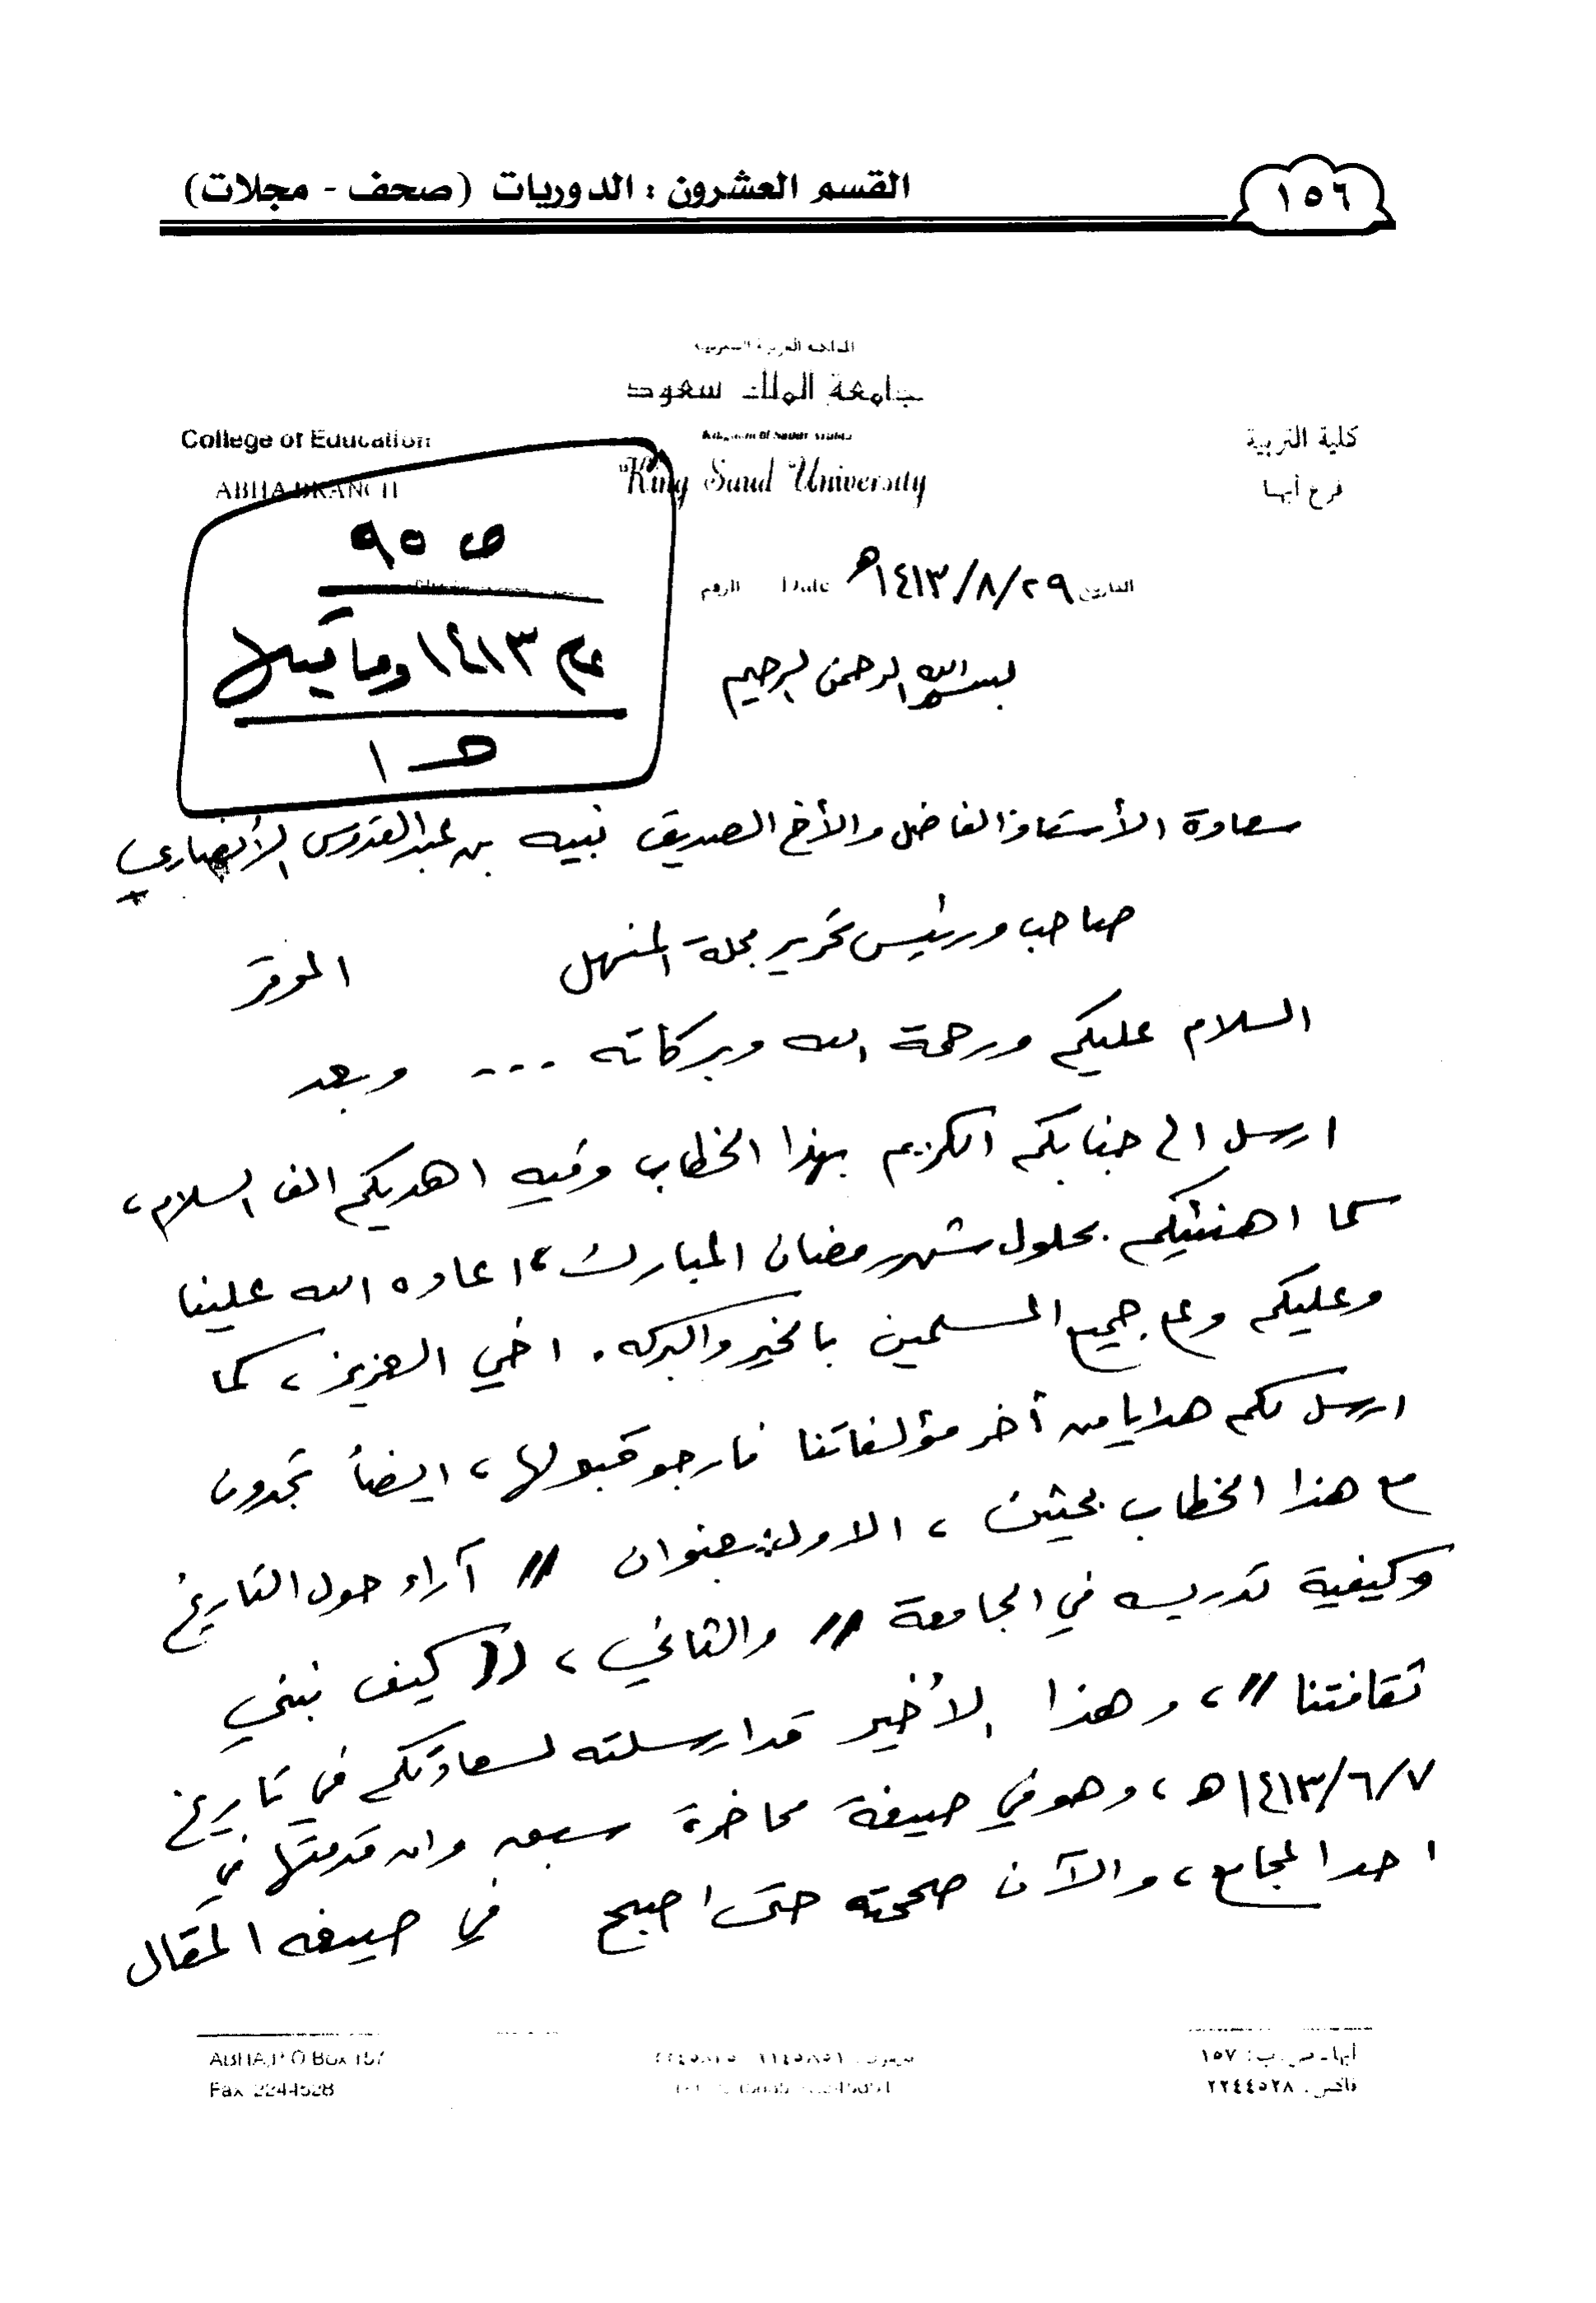 ١٥٦
القسم العشرون : الدوريات (صحف - مجلات)
المملكة العربية السعودية
جامعة الملك سعود
Kingdom of Saudi Arabia
King Saud University
College of Education
ABHA BRANCH
كلية التربية
فرع أبها
ص ٩٥
عام ١٤١٣ وما قبلها
هـ ١
التاريخ ١٤١٣/٨/٢٩هـ Date الرقم
بسم الله الرحمن الرحيم
سعادة الأستاذ الفاضل والأخ الصديق نبيه بن عبد القدوس الأنصاري
صاحب ورئيس تحرير مجلة المنهل الموقر
السلام عليكم ورحمة الله وبركاته --- وبعد
ارسل الى جنابكم الكريم بهذا الخطاب وفيه اهديكم الف السلام،
كما اهنئيكم بحلول شهر رمضان المبارك، اعاده الله علينا
وعليكم وعلى جميع المسلمين بالخير والبركه. اخي العزيز، كما
ارسل لكم هدايا من أخر مؤلفاتنا فارجو قبولها، ايضاً تجدون
مع هذا الخطاب بحثين، الاول: بعنوان // آراء حول التاريخ
وكيفية تدريسه في الجامعة // والثاني، (( كيف نبني
ثقافتنا //، وهذا الأخير قد ارسلته لسعادتكم في تاريخ
١٤١٣/٦/٧هـ، وهو في صيغة محاضرة سبق وان قدمتها في
احد المجامع، والآن صححته حتى اصبح في صيغه المقال
أبها. ص. ب: ١٥٧
فاكس. ٢٢٤٤٥٢٨
ABHA, P.O Box 157
Fax 2244528